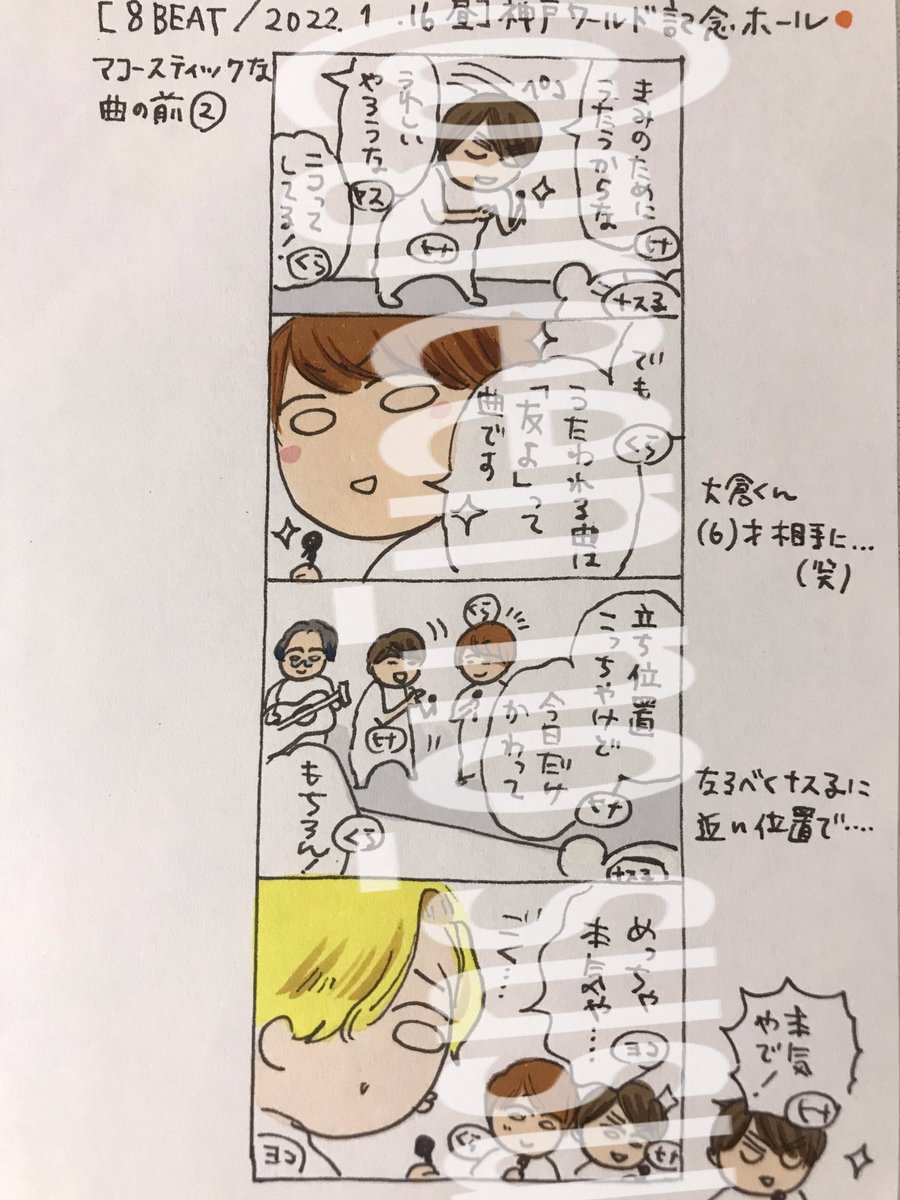 [8BEAT/2022.1.16昼]神戸ワールド記念ホール
マコースティックな
曲の前②
きみのために
うたうからな
ペコ
うれしい
やろうな
ヤス
ニコって
してる!
くら
ナス子
でも
くら
うたわれる曲は
「友よ」って
曲です
大倉くん
(6)才相手に…
(笑)
立ち位置
こっちやけど
今日だけ
かわって
くら
もちろん!
くら
ナス子
なるべくナス子に
近い位置で….
めっちゃ
本気や…
ごく…
くら
本気
やで!